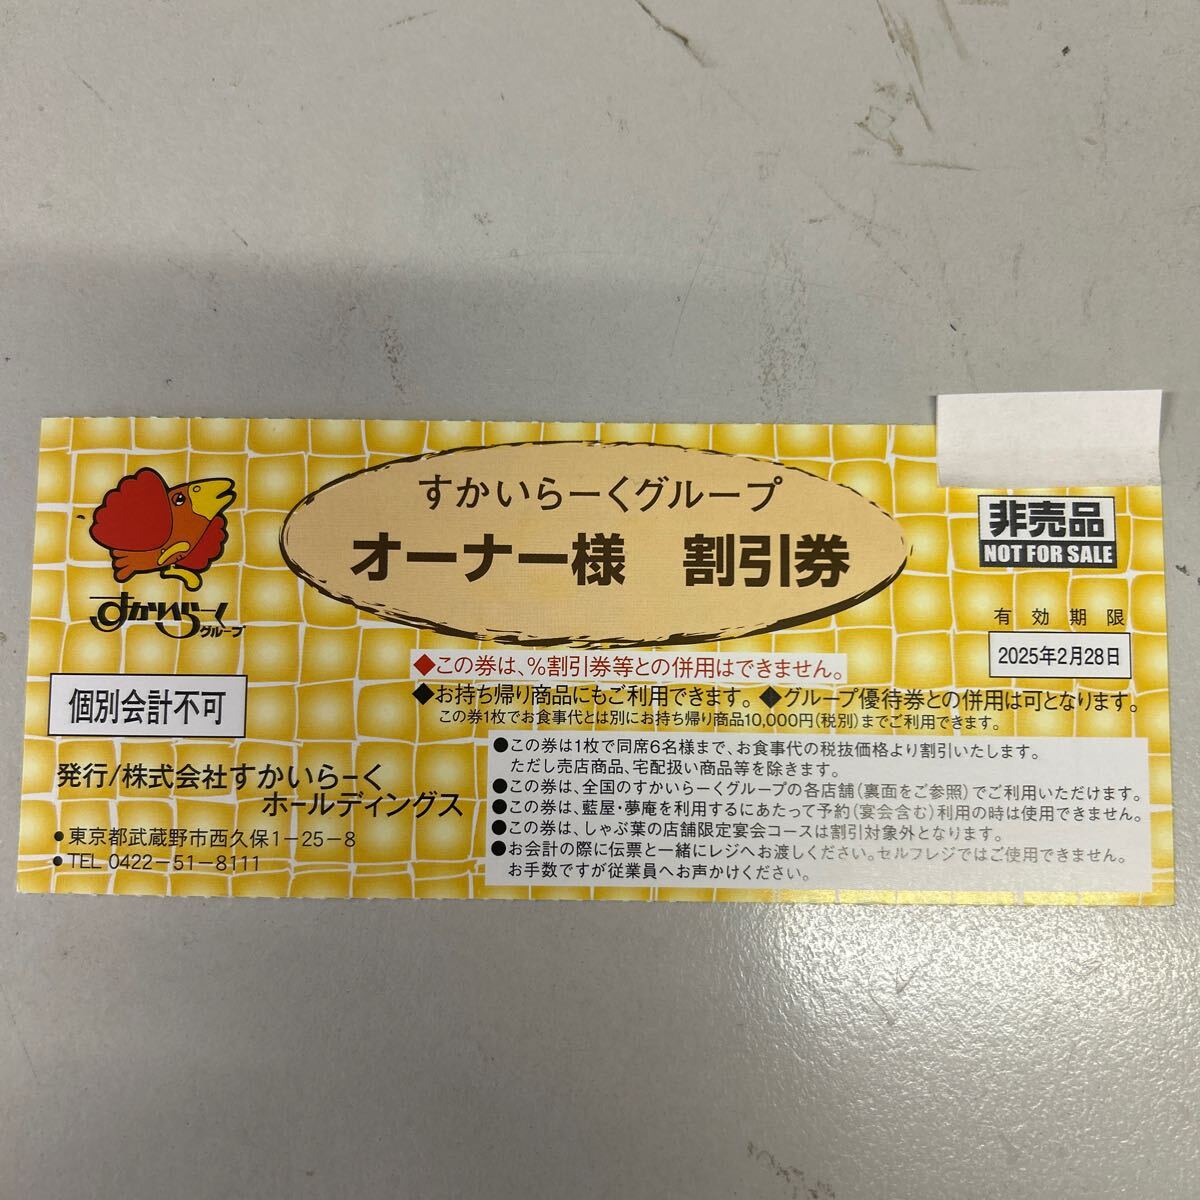 すかいらーく
グループ
すかいらーくグループ
オーナー様 割引券
非売品
NOT FOR SALE
有効期限
2025年2月28日
個別会計不可
発行/株式会社すかいらーく
ホールディングス
●東京都武蔵野市西久保1-25-8
●TEL 0422-51-8111
◆この券は、%割引券等との併用はできません。
◆お持ち帰り商品にもご利用できます。◆グループ優待券との併用は可となります。
この券1枚でお食事代とは別にお持ち帰り商品10,000円(税別)までご利用できます。
●この券は1枚で同席6名様まで、お食事代の税抜価格より割引いたします。
ただし売店商品、宅配扱い商品等を除きます。
●この券は、全国のすかいらーくグループの各店舗(裏面をご参照)でご利用いただけます。
●この券は、藍屋・夢庵を利用するにあたって予約(宴会含む)利用の時は使用できません。
●この券は、しゃぶ葉の店舗限定宴会コースは割引対象外となります。
●お会計の際に伝票と一緒にレジへお渡しください。セルフレジではご使用できません。
お手数ですが従業員へお声かけください。